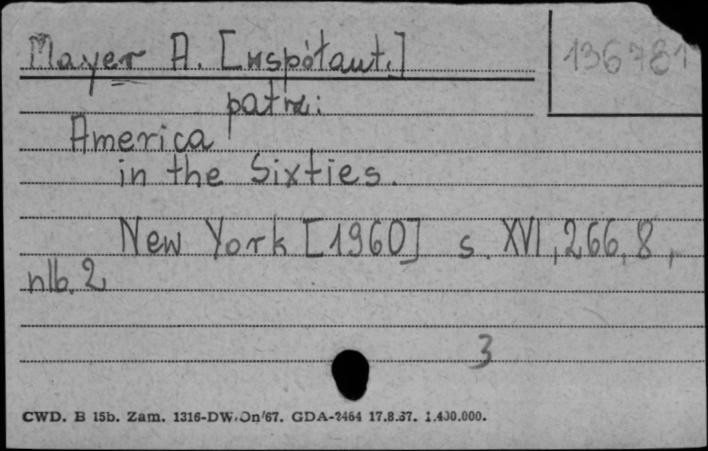 Mayer A. [współaut.]
136781
patrz:
America
in the Sixties.
New York [1960] s. XVI, 266, 8,
nlb. 2
3
CWD. B 15b. Zam. 1316-DW/Dn/67. GDA-2464 17.8.67. 1.400.000.